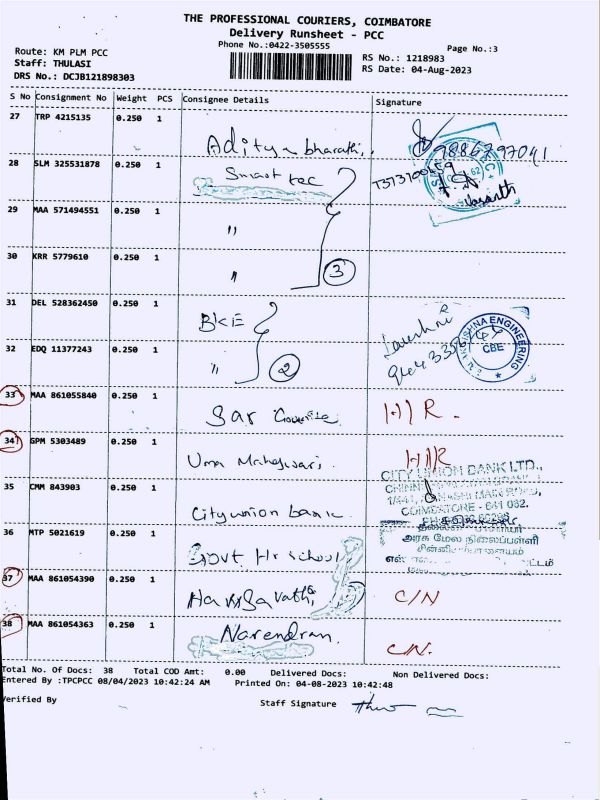 THE PROFESSIONAL COURIERS, COIMBATORE
Delivery Runsheet - PCC
Phone No.:0422-3505555
Page No.:3
Route: KM PLM PCC
Staff: THULASI
DRS No.: DCJB121898303
RS No.: 1218983
RS Date: 04-Aug-2023
S No Consignment No Weight PCS Consignee Details Signature
27 TRP 4215135 0.250 1
Aditya bharathi,
28 SLM 325531878 0.250 1
Smart tec
29 MAA 571494551 0.250 1
"
30 KRR 5779610 0.250 1
"
3
31 DEL 528362450 0.250 1
BKE
KRISHNA ENGINEERING
CBE
32 EDQ 11377243 0.250 1
"
2
33 MAA 861055840 0.250 1
Sar
H)R.
34 GPM 5303489 0.250 1
Uma Maheswari.
H)R
35 CMM 843903 0.250 1
City union bank.
CITY UNION BANK LTD.,
COIMBATORE - 641 062.
36 MTP 5021619 0.250 1
Govt Hr school
அரசு மேல நிலைப்பள்ளி
37 MAA 861054390 0.250 1
C/N
38 MAA 861054363 0.250 1
Narendran.
C/N.
Total No. Of Docs: 38 Total COD Amt: 0.00 Delivered Docs: Non Delivered Docs:
Entered By :TPCPCC 08/04/2023 10:42:24 AM Printed On: 04-08-2023 10:42:48
Verified By
Staff Signature